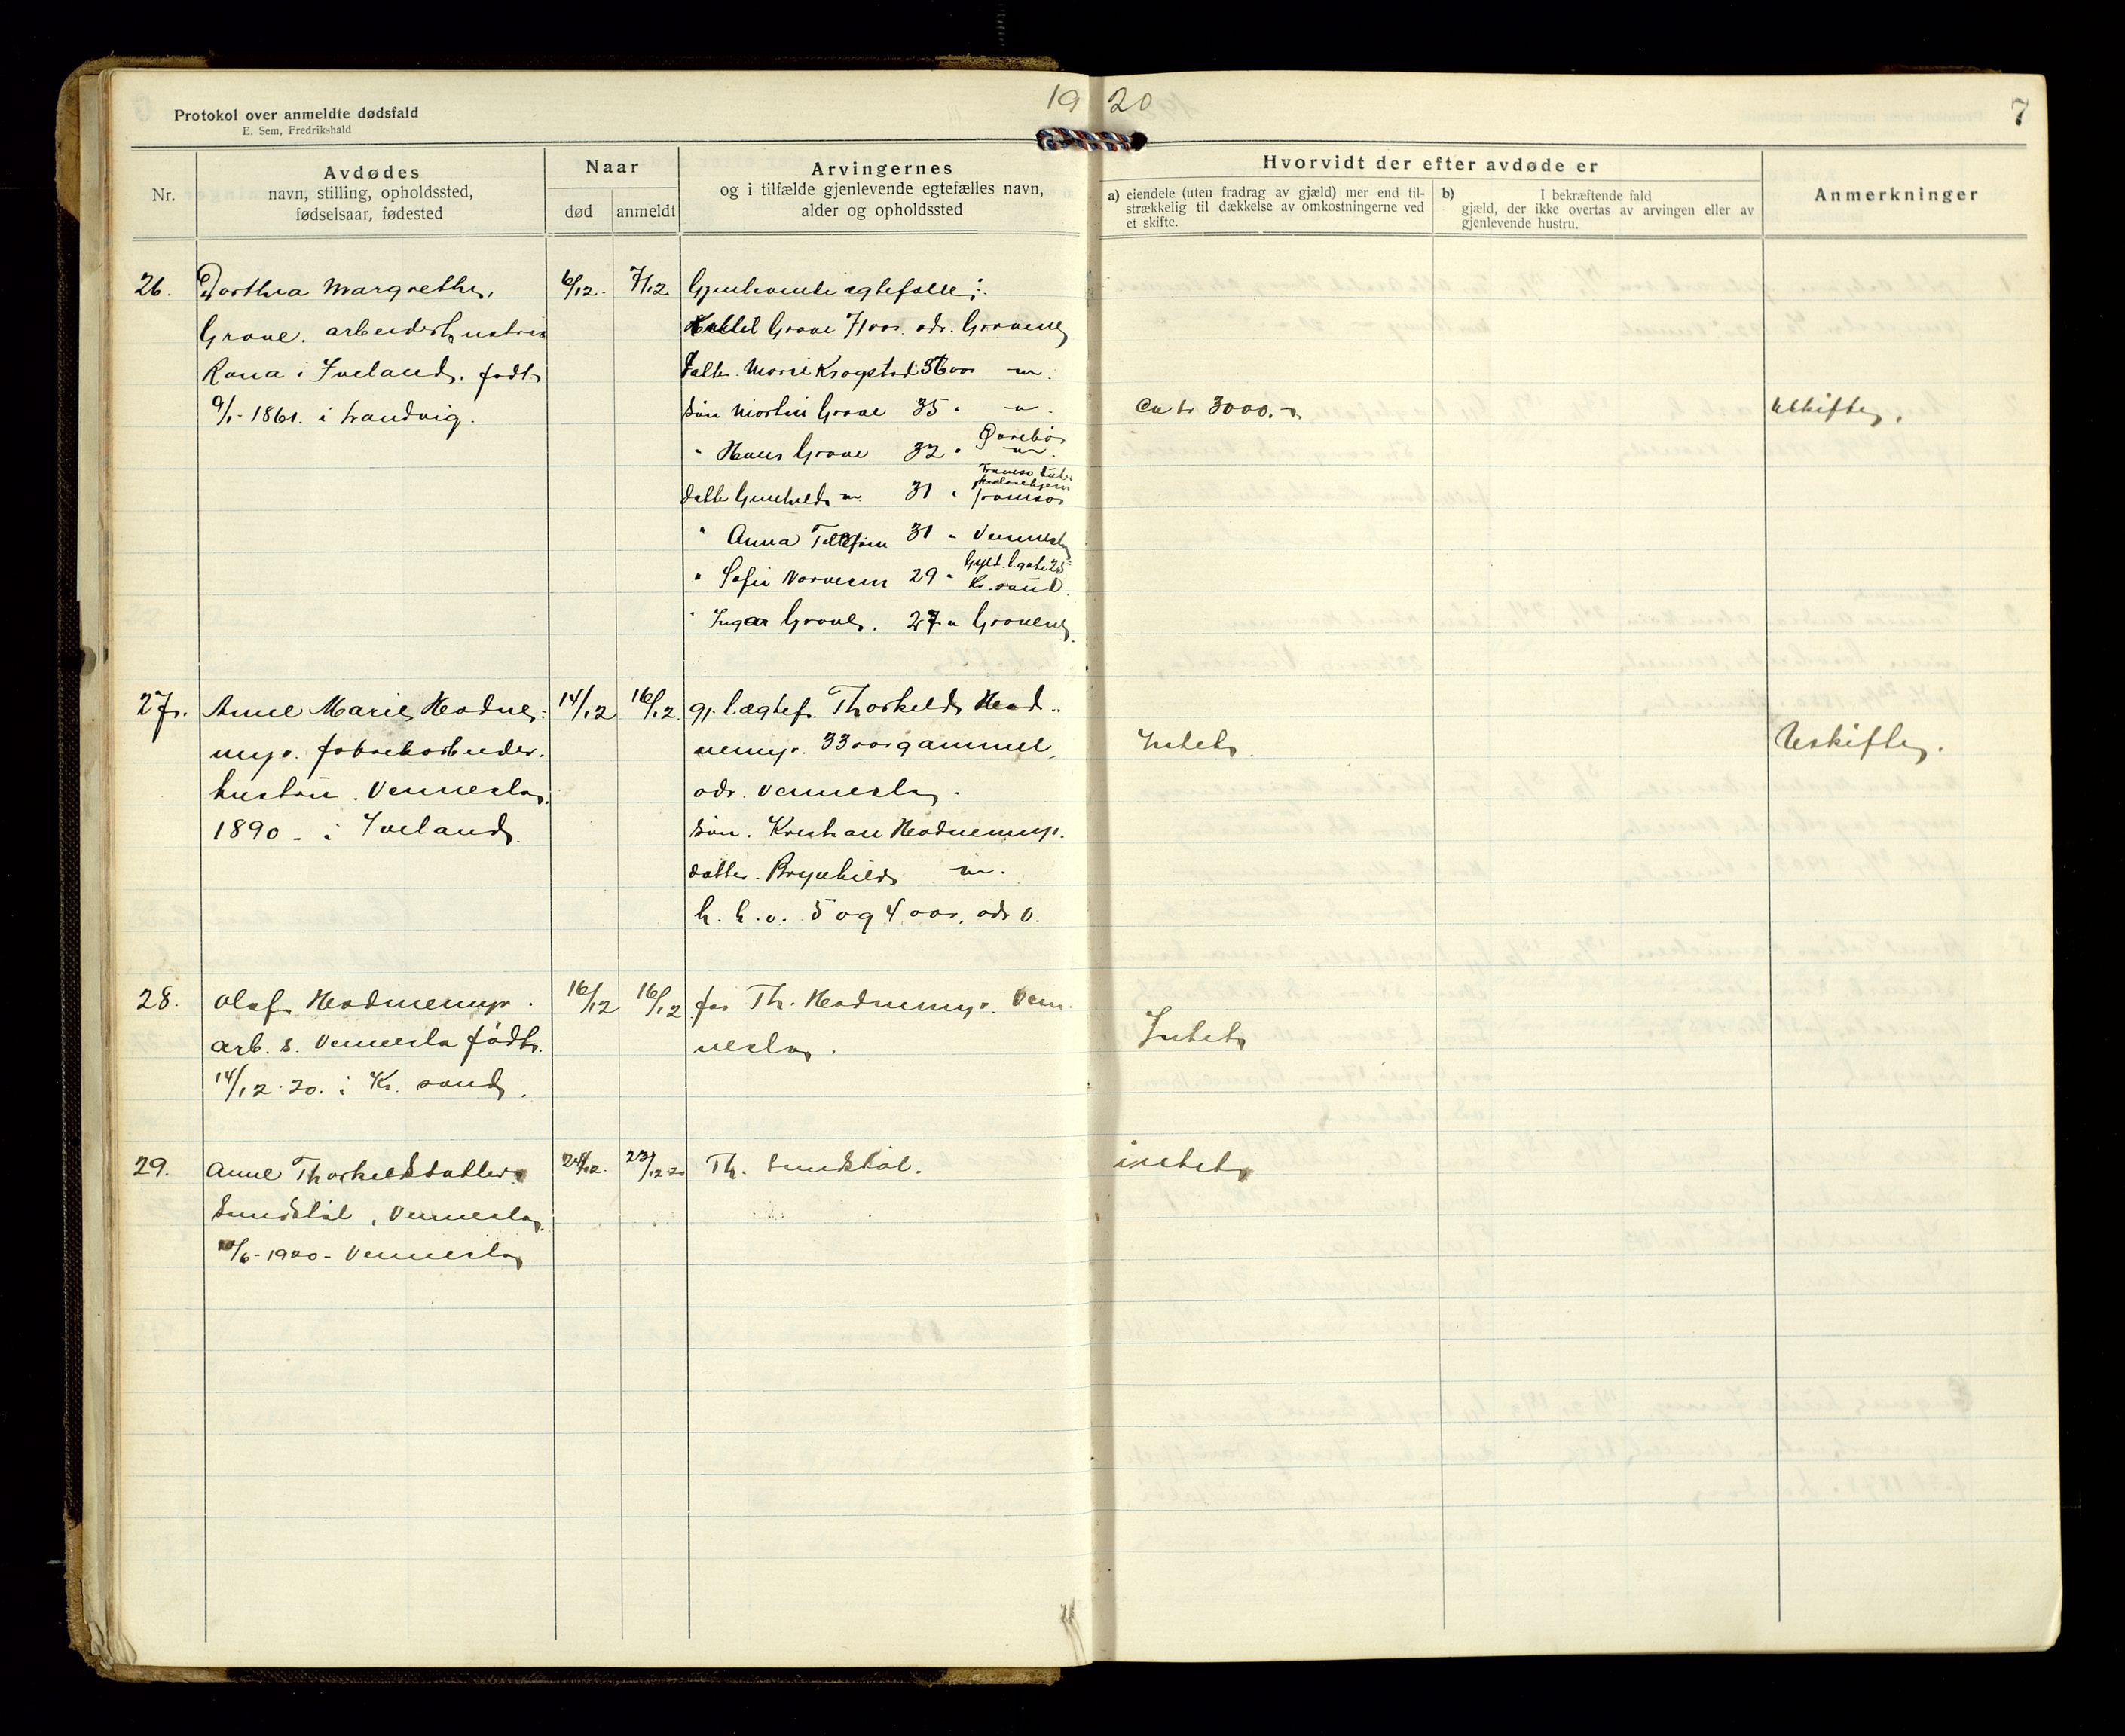 19 20
7
Protokol over anmeldte dødsfald
E. Sem, Fredrikshald
Nr.
Avdødes
navn, stilling, opholdssted,
fødselsaar, fødested
Naar
død
anmeldt
Arvingernes
og i tilfælde gjenlevende egtefælles navn,
alder og opholdssted
Hvorvidt der efter avdøde er
a) eiendele (uten fradrag av gjæld) mer end til-
strækkelig til dækkelse av omkostningerne ved
et skifte.
b) I bekræftende fald
gjæld, der ikke overtas av arvingen eller av
gjenlevende hustru.
Anmerkninger
26.
Dorthea Margrethe
Grove. arbeiderhustru
i Iveland. født
9/1-1861. i Landvig.
6/12.
7/12
Gjenlevende ægtefælle:
Grove 71 aar. adr. Grovene
datter. Krogstad 36 aar -"-.
Søn Martin Grove 35 " -"-.
" Hans Grove 32 "
datter Gunhild -"- 31 " Tromsø
" Anna 31 " Vennesla
" Sofie 29 " Kr.sand.
" Grove. 27 " Grovene
Ca kr 3000.-
Uskifte.
27.
Anne Marie Hodne-
myr. fabrikarbeider.
hustru. Vennesla.
1890 - i Iveland.
14/12
16/12.
gj. l. ægtef. Thorkild Hod-
nemyr. 33 aar gammel,
adr. Vennesla.
Søn. Kristian Hodnemyr.
datter. Brynhild -"-.
h. h. v. 5 og 4 aar, adr V.
Intet.
Uskifte.
28.
Olaf Hodnemyr.
arb. s. Vennesla født.
14/12.20. i Kr. sand.
16/12
16/12
far Th. Hodnemyr. Ven-
nesla.
Intet
29.
Anne Thorkeldsdatter
Sundstøl, Vennesla
/6-1920 - Vennesla
/12.
23/12-20
Th. Sundstøl.
intet